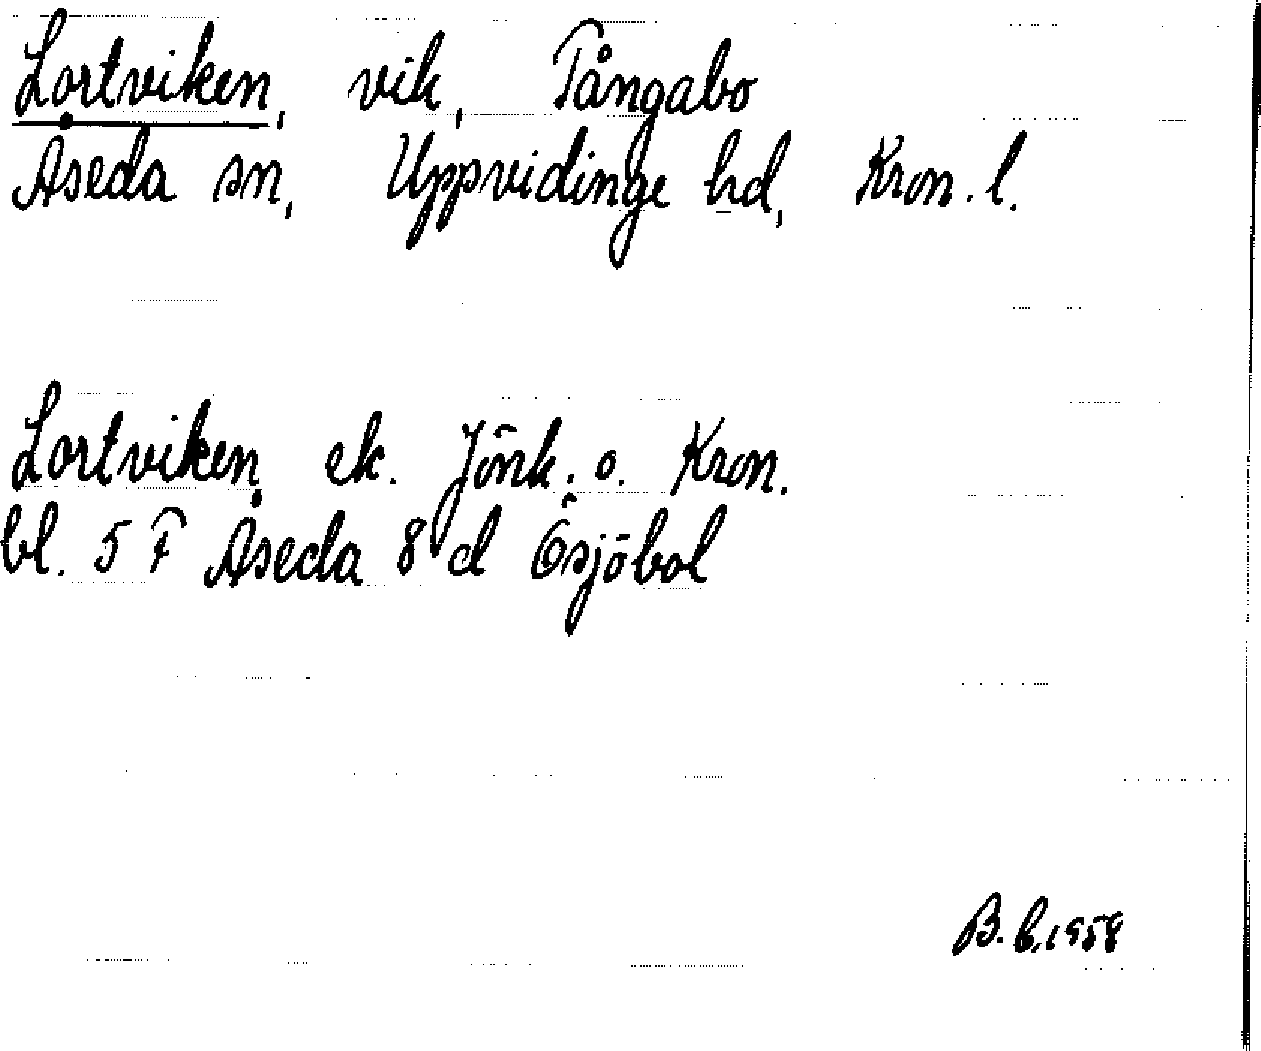 Lortviken, vik, Tångabo
Åseda sn, Uppvidinge hd, Kron. l.
Lortviken, ek. Jönk. o. Kron.
bl. 5 F Åseda 8 d Ösjöbol
1958